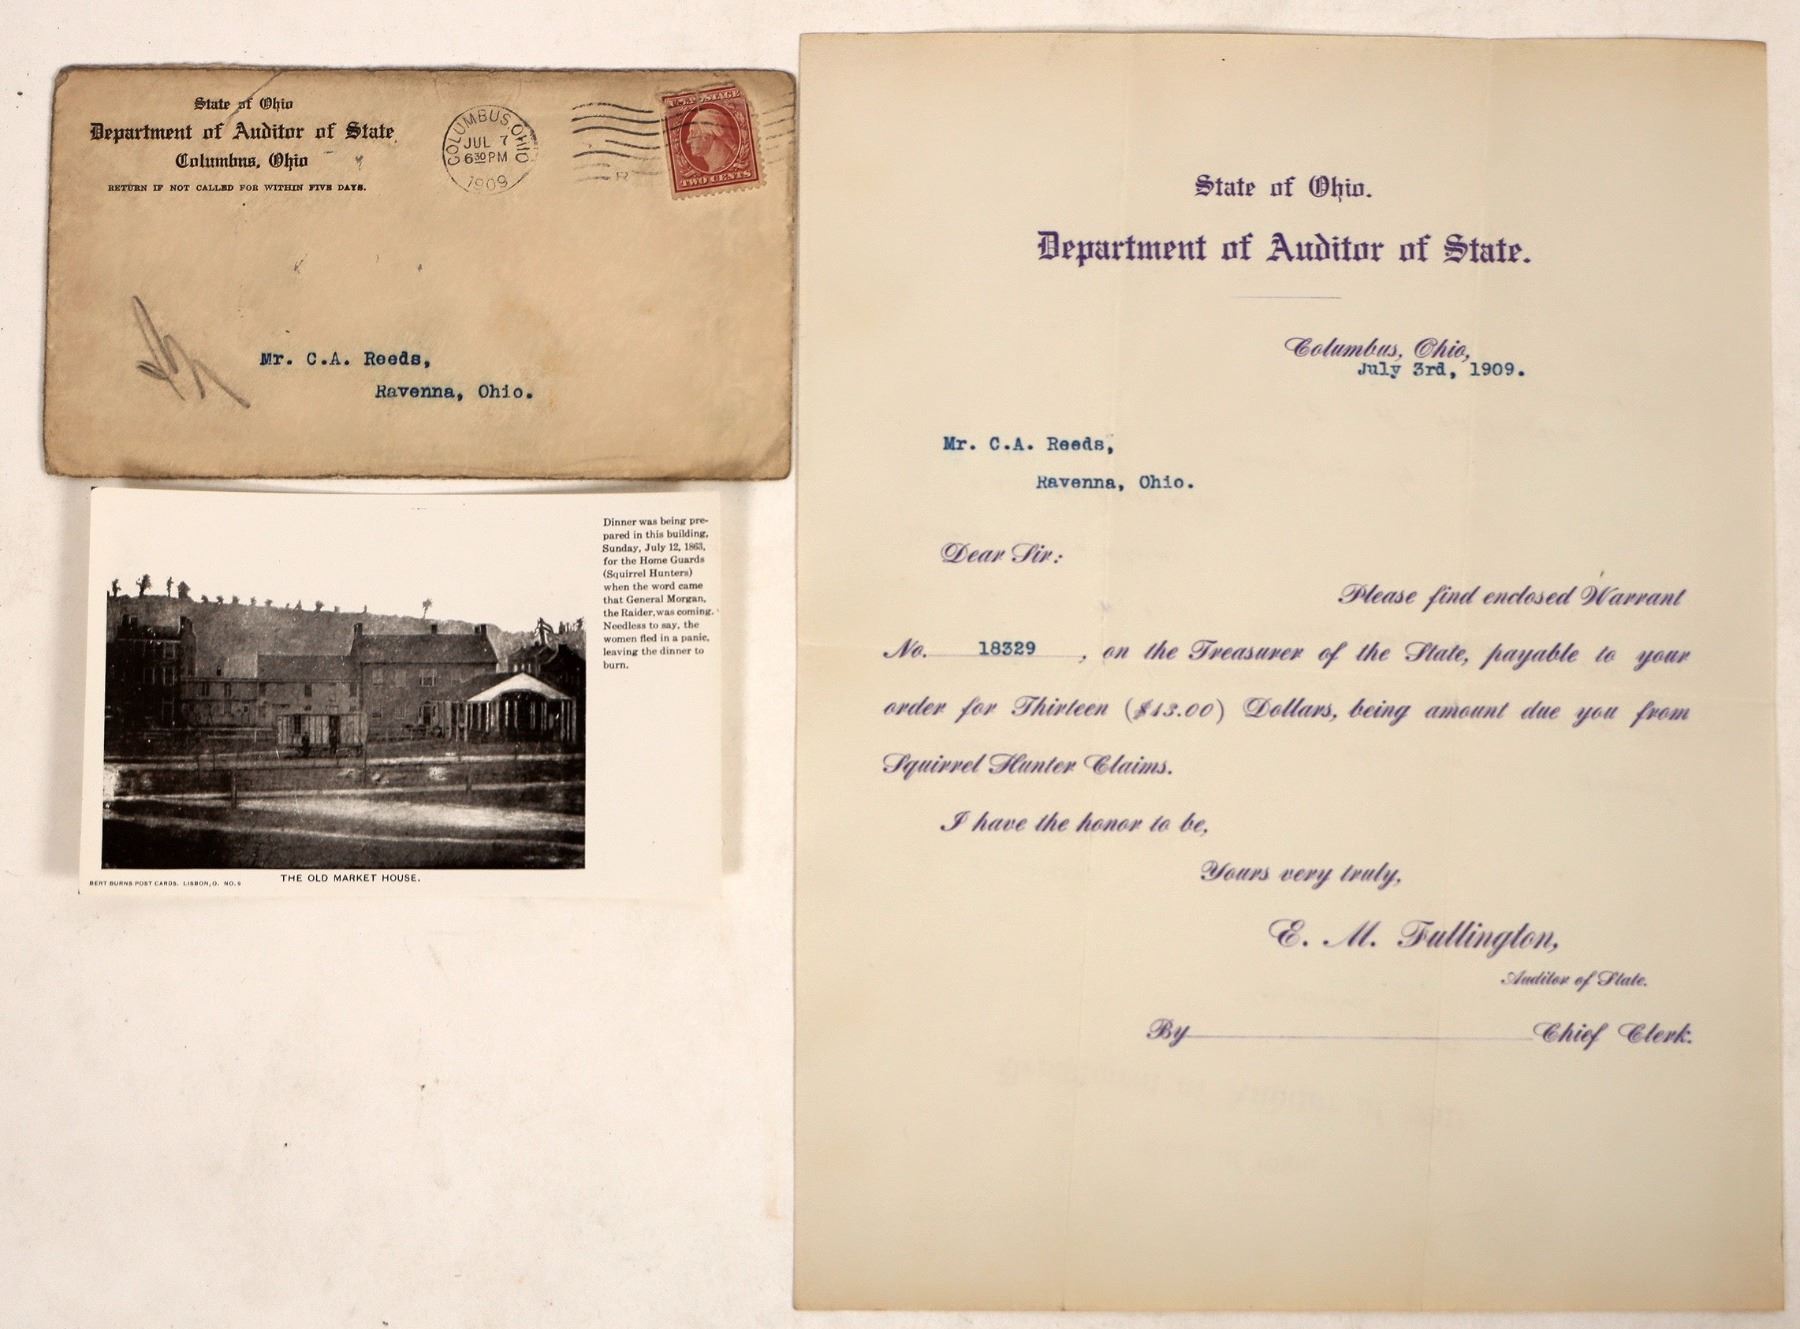 State of Ohio
Department of Auditor of State
Columbus, Ohio
RETURN IF NOT CALLED FOR WITHIN FIVE DAYS.
COLUMBUS OHIO
JUL 7
6 30 PM
1909
U.S. POSTAGE
TWO CENTS
Mr. C.A. Reeds,
Ravenna, Ohio.
Dinner was being pre-
pared in this building,
Sunday, July 12, 1863,
for the Home Guards
(Squirrel Hunters)
when the word came
that General Morgan,
the Raider, was coming.
Needless to say, the
women fled in a panic,
leaving the dinner to
burn.
THE OLD MARKET HOUSE.
BERT BURNS POST CARDS. LISBON, O. NO.
State of Ohio.
Department of Auditor of State.
Columbus, Ohio,
July 3rd, 1909.
Mr. C.A. Reeds,
Ravenna, Ohio.
Dear Sir:
Please find enclosed Warrant
No. 18329, on the Treasurer of the State, payable to your
order for Thirteen ($13.00) Dollars, being amount due you from
Squirrel Hunter Claims.
I have the honor to be,
Yours very truly,
E. M. Fullington,
Auditor of State.
By Chief Clerk.